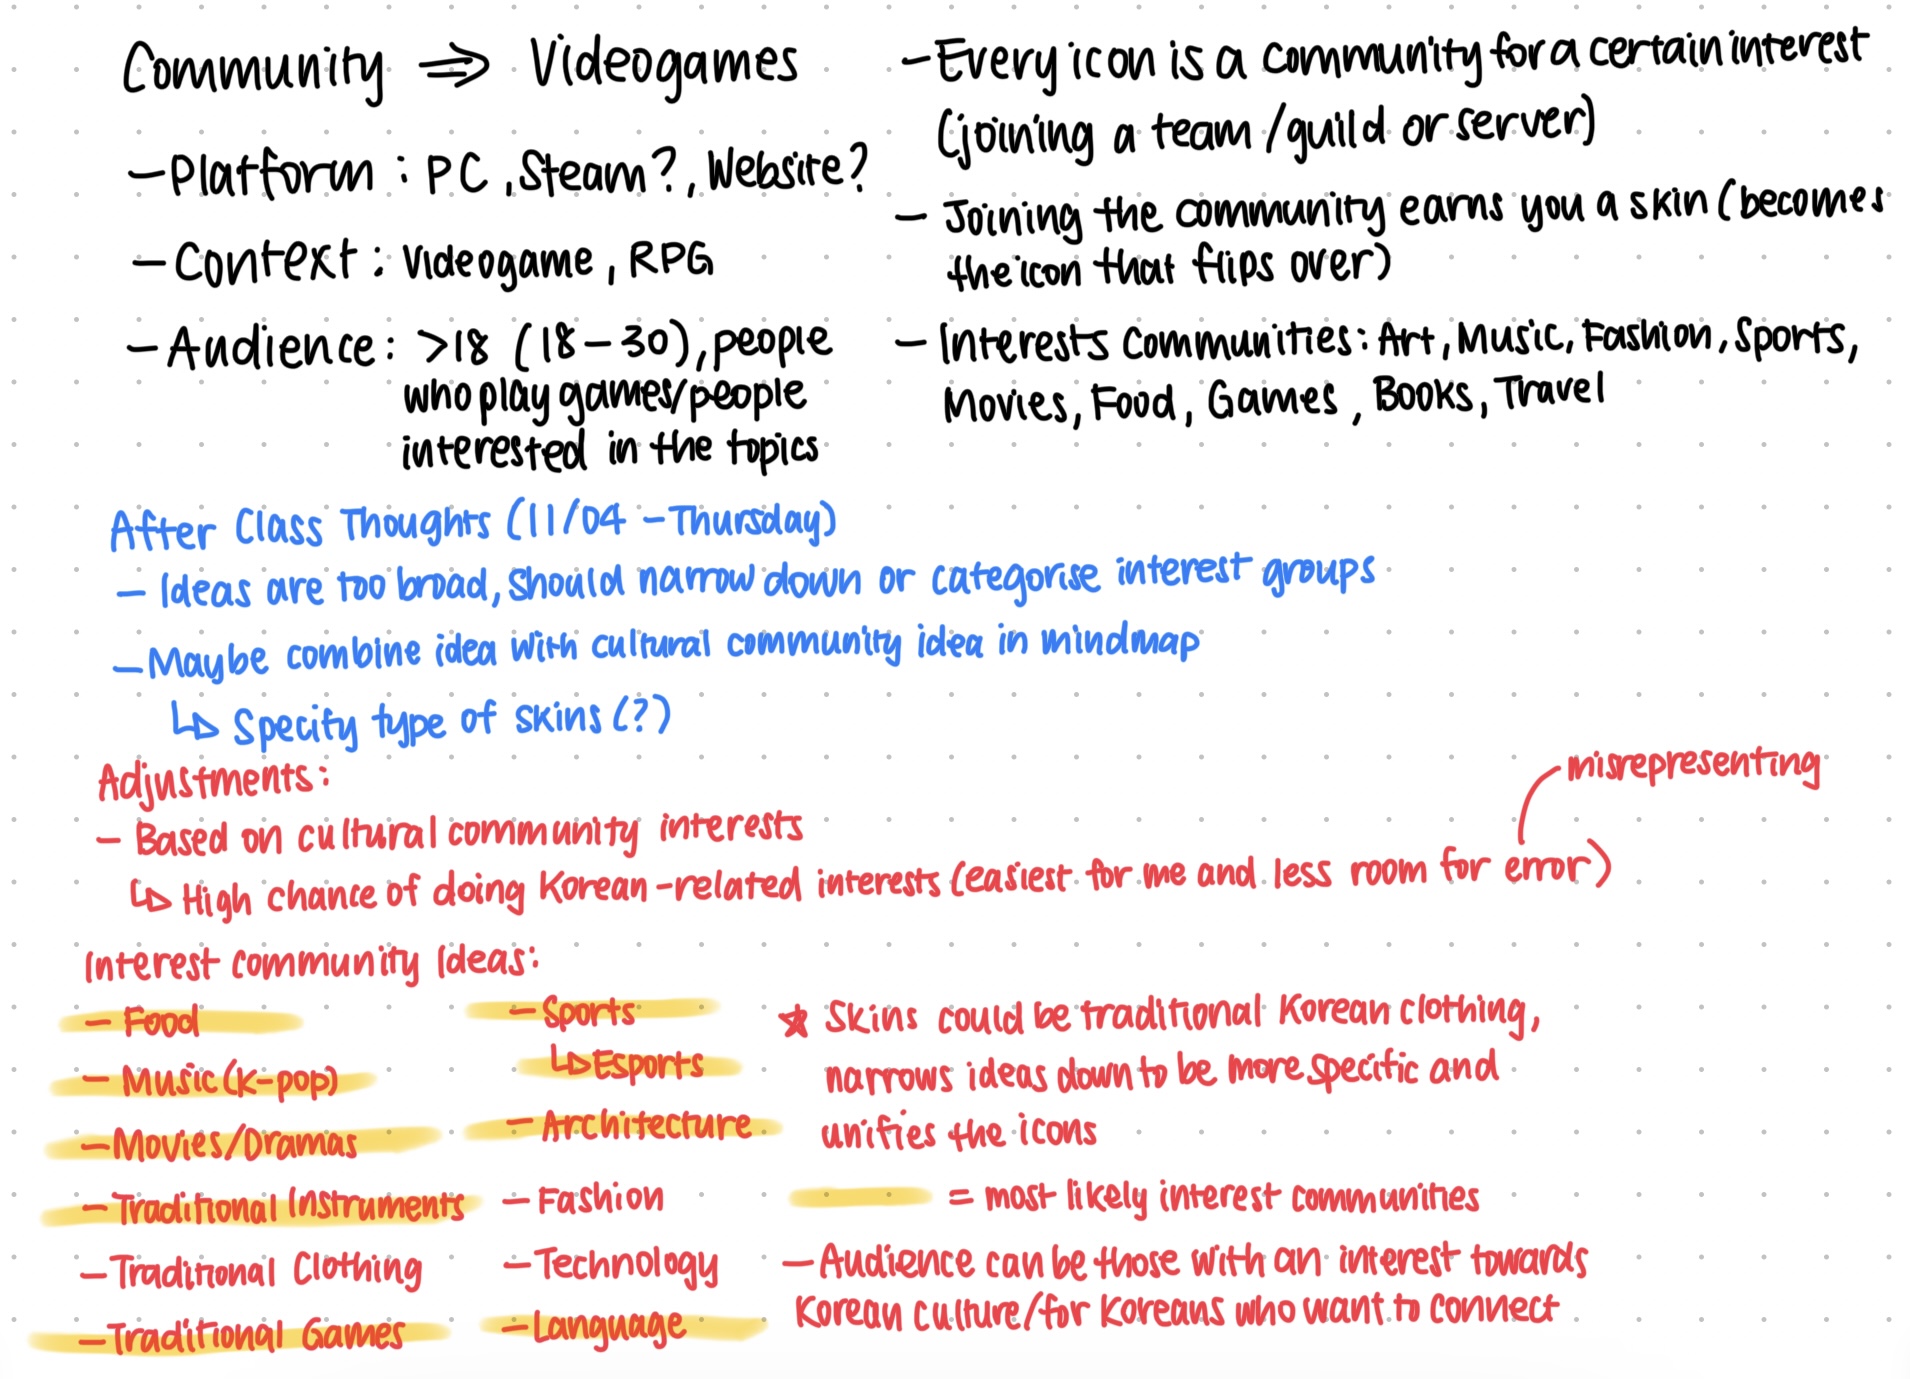 Community ⇒ Videogames
- Platform : PC, Steam?, Website?
- Context : Videogame, RPG
- Audience : >18 (18-30), people
who play games/people
interested in the topics
- Every icon is a community for a certain interest
(joining a team/guild or server)
- Joining the community earns you a skin (becomes
the icon that flips over)
- Interests Communities: Art, Music, Fashion, Sports,
Movies, Food, Games, Books, Travel
After Class Thoughts (11/04 - Thursday)
- Ideas are too broad, should narrow down or categorise interest groups
- Maybe combine idea with cultural community idea in mindmap
↳ Specify type of skins (?)
Adjustments:
- Based on cultural community interests
misrepresenting
↳ High chance of doing Korean-related interests (easiest for me and less room for error)
Interest community Ideas:
- Food
- Music (K-pop)
- Movies/Dramas
- Traditional Instruments
- Traditional Clothing
- Traditional Games
- Sports
↳ Esports
- Architecture
- Fashion
- Technology
- Language
★ Skins could be traditional Korean clothing,
narrows ideas down to be more specific and
unifies the icons
= most likely interest communities
- Audience can be those with an interest towards
Korean culture/for Koreans who want to connect